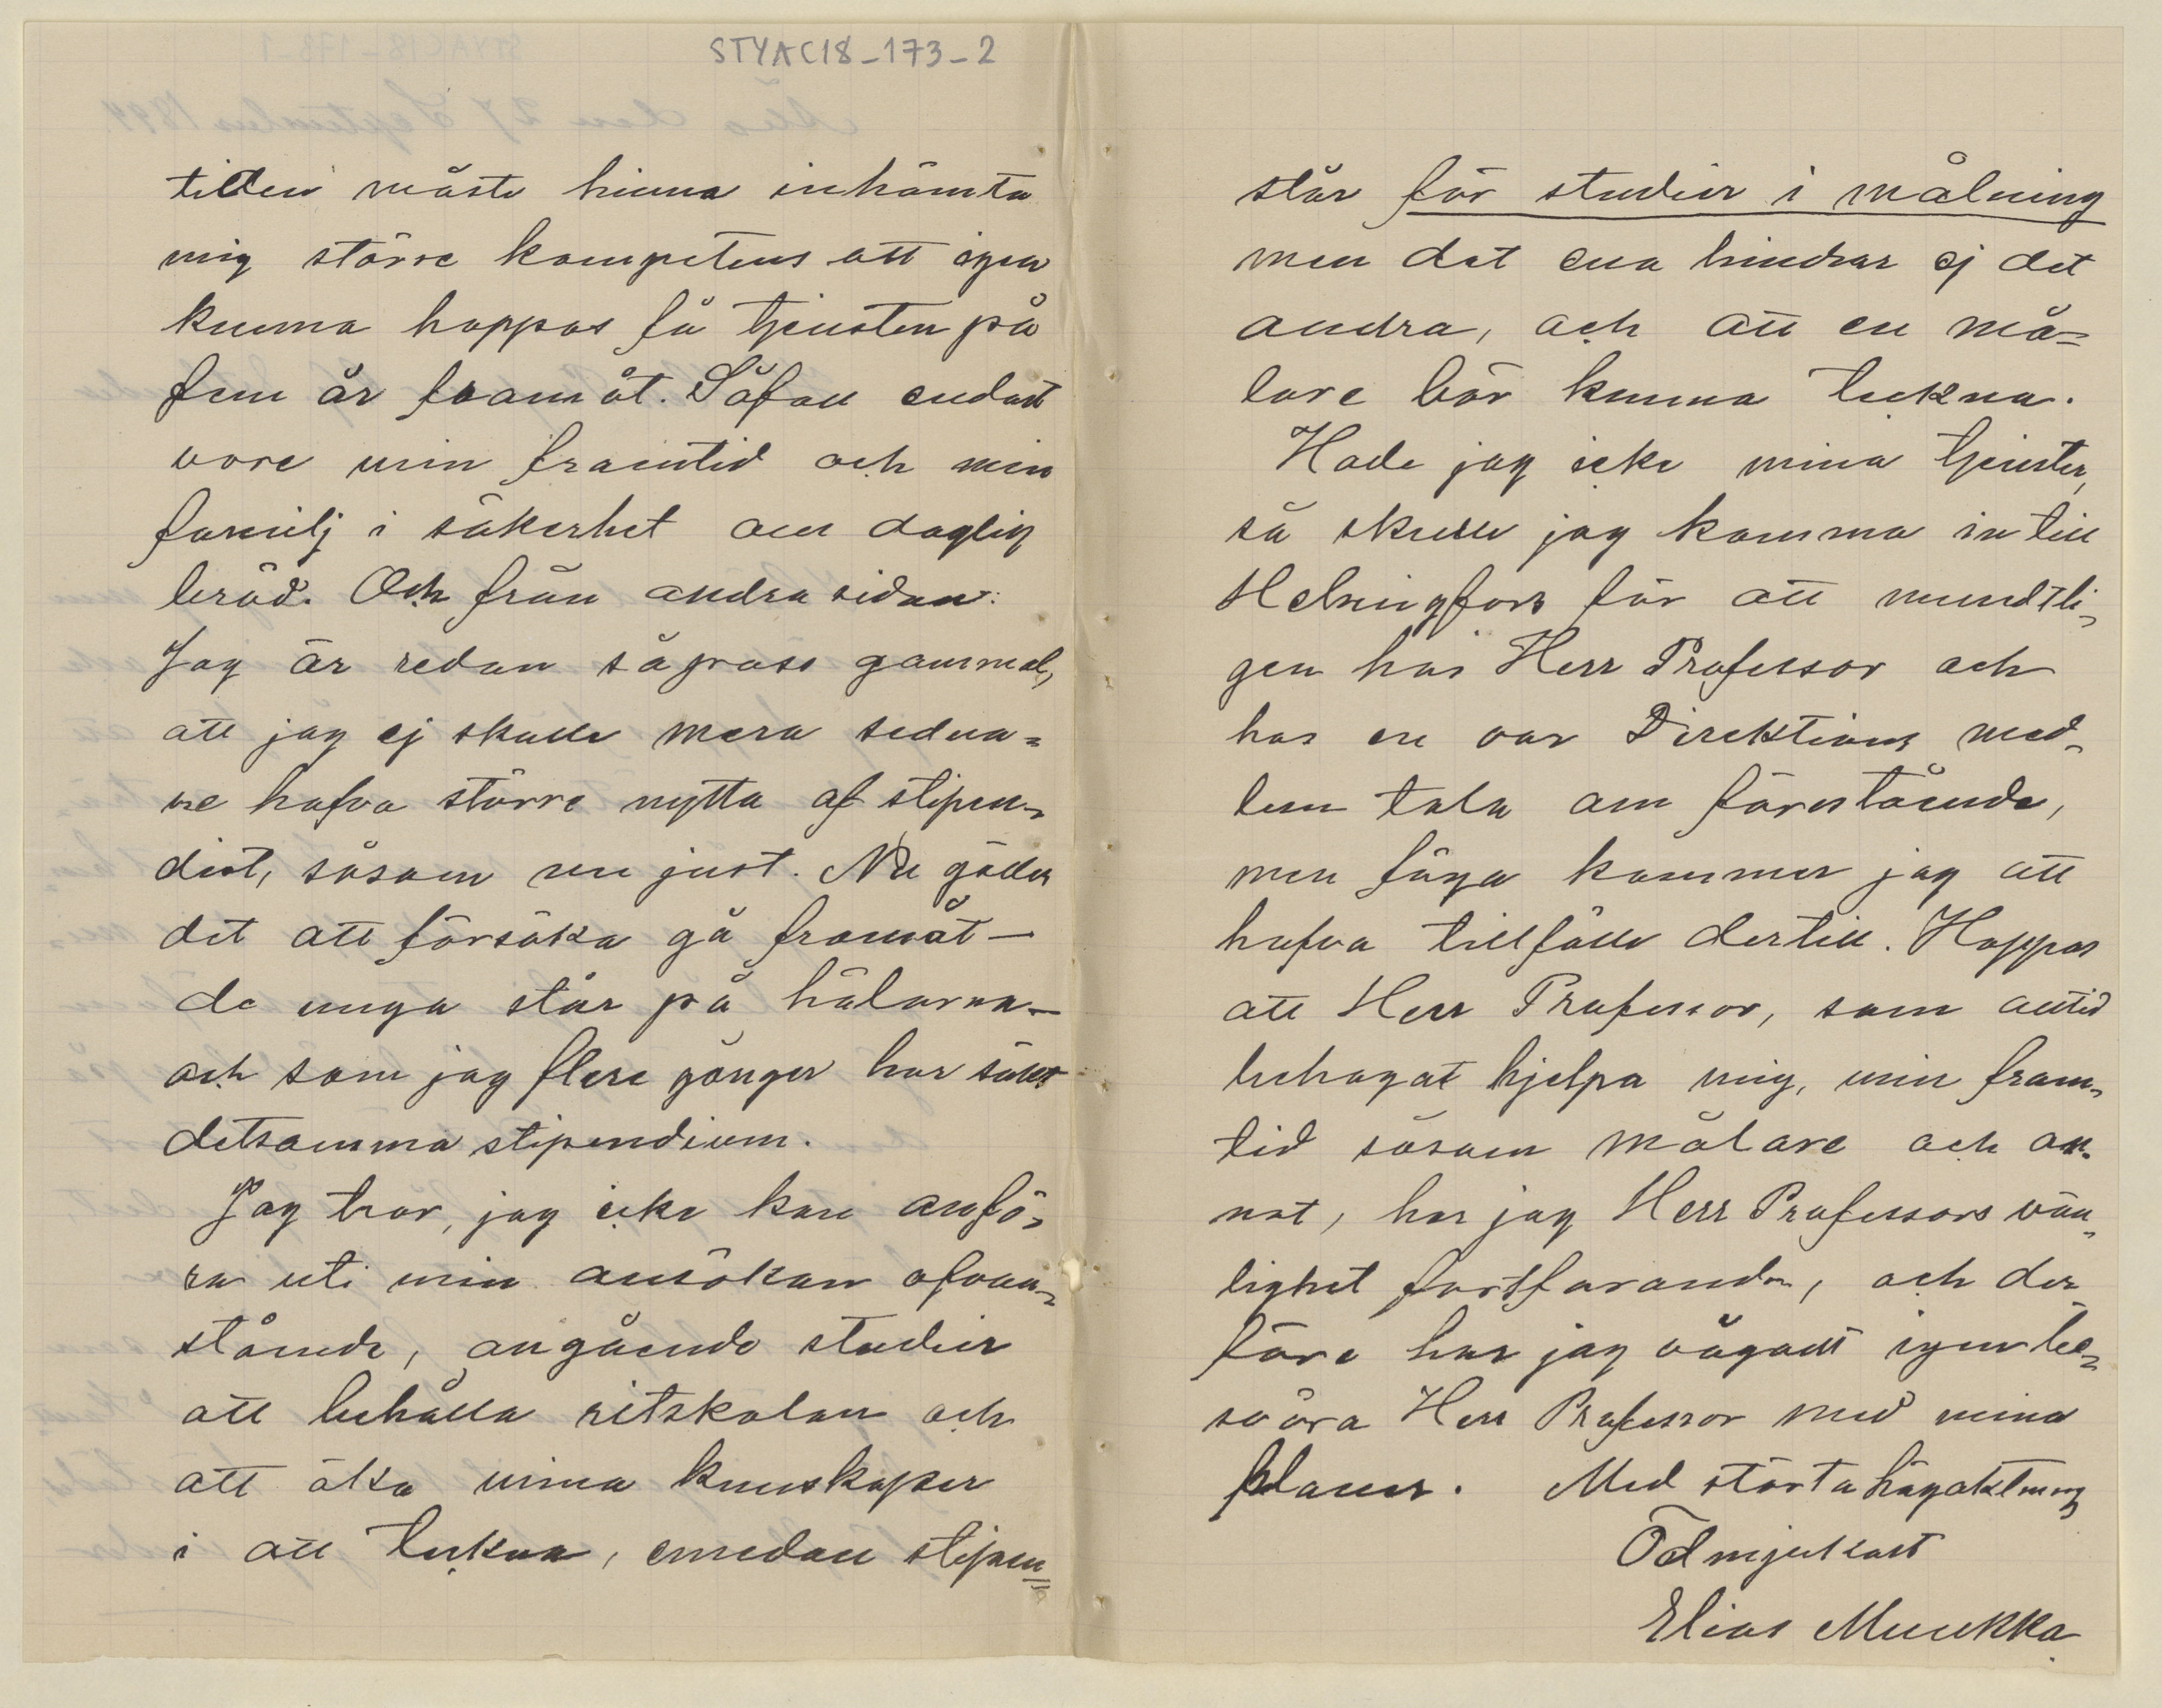 STYAC18_173_2
tiden måste hinna inhämta
mig större kompetens att igen
kunna hoppas få tjensten på
fem år framåt. Såfall endast
vore min framtid och min
familj i säkerhet om daglig
bröd. Och från andra sidan:
Jag är redan såpass gammal,
att jag ej skulle mera sedna=
re hafva större nytta af stipen-
diet, såsom nu just. Nu gäller
det att försöka gå framåt —
de unga står på hälarna —
och som jag flere gånger har sökt
detsamma stipendium.
Jag tror, jag icke kan anfö-
ra uti min ansökan ofvan-
stånde, angående studier
att behålla ritskolan och
att öka mina kunskaper
i att teckna, emedan stipen=
står för studier i målning
men det ena hindrar ej det
andra, och att en må=
lare bör kunna teckna.
Hade jag icke mina tjenster,
så skulle jag komma in till
Helsingfors för att mundtli-
gen hos Herr Professor och
hos en var Direktions med-
lem tala om förestående,
men föga kommer jag att
hafva tillfälle dertill. Hoppas
att Herr Professor, som alltid
behagat hjelpa mig, min fram-
tid såsom målare och an-
nat, har jag Herr Professors vän-
lighet fortfarande, och der
före har jag vågat igen be-
svära Herr Professor med mina
planer. Med största högaktning
Ödmjukast
Elias Muukka